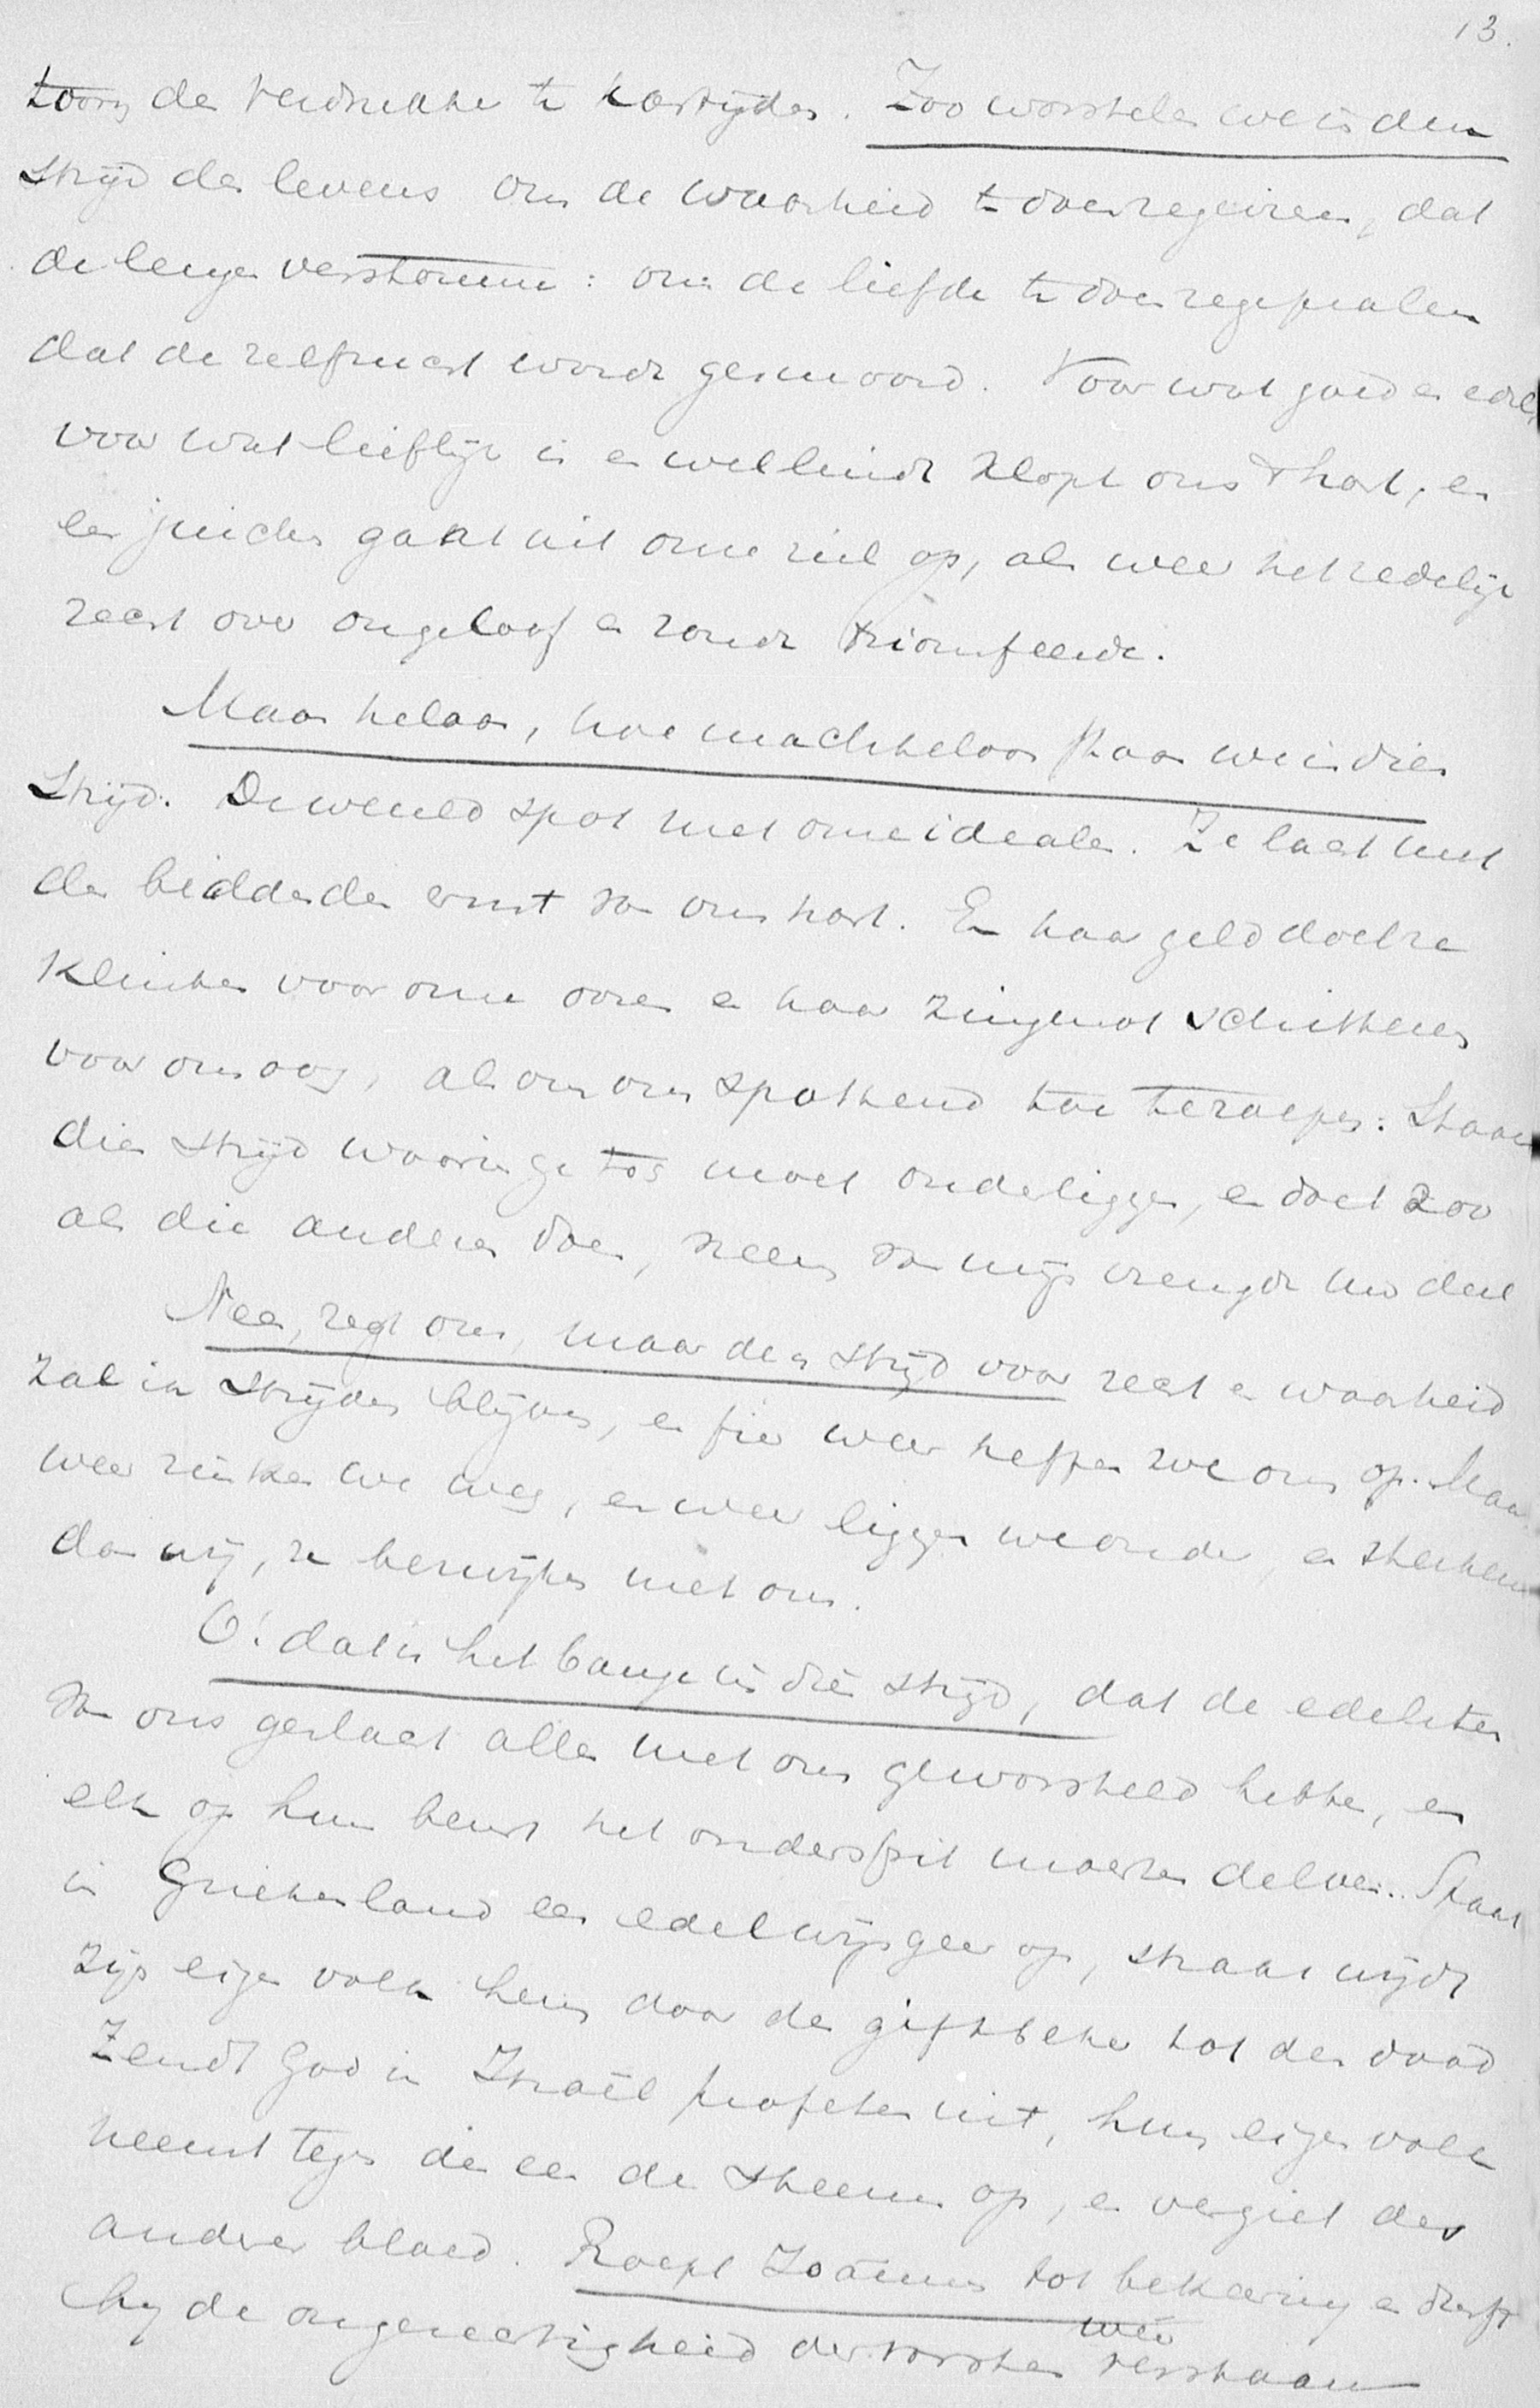 13.
toorn der verdrukte te kastijden. Zoo worstelen we in den
strijd des levens om de waarheid te doen zegevieren, dat
de leugen verstomme: om de liefde te doen zegepralen
dat de zelfzucht wordt gesmoord. Voor wat goed en edel,
voor wat lieflijk is en welluidt klopt ons 't hart, en
een juichen gaat uit onze ziel op, als weer het zedelijk
recht over ongeloof en zonde triomfeerde.
Maar helaas, hoe machteloos staan we in dien
strijd. De wereld spot met onze idealen. Ze lacht met
den biddenden ernst van ons hart. En haar geld doet ze
klinken voor onze ooren en haar zingenot schitteren
voor ons oog, als om ons spottend toe te roepen: Staak
dien strijd waarin ge toch moet onderliggen, en doet zoo
als die anderen doen, neem van mijn vreugde uw deel
Neen, zegt ons, maar den strijd voor recht en waarheid
zal ik strijden blijven, en fier weer heffen we ons op. Maar
weer zinken we weg, en weer liggen we onder, en sterkeren
dan wij, ze bezwijken met ons.
O! dat is het bange in dien strijd, dat de edelsten
van ons geslacht allen met ons geworsteld hebben, en
elk op hun beurt het onderspit moesten delven.. Staat
in Griekenland een edel wijsgeer op, straks wijdt
zijn eigen volk hem door den giftbeker tot den dood
Zendt God in Israël profeten uit, hun eigen volk
neemt tegen den een de steenen op, en vergiet des
andren bloed. Roept Joannes tot bekeering en durft
hij de ongerechtigheid der vorsten weerstaan